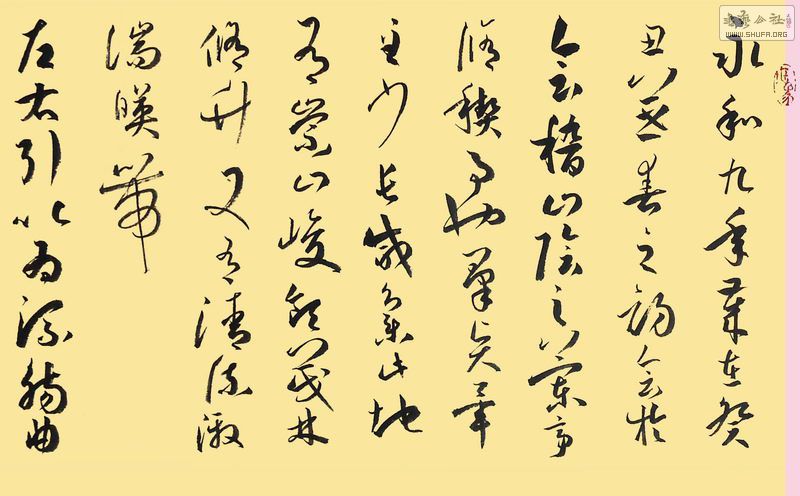 書法公社
WWW.SHUFA.ORG
永和九年歲在癸
丑暮春之初會於
會稽山陰之蘭亭
脩禊事也羣賢畢
至少長咸集此地
有崇山峻領茂林
脩竹又有清流激
湍暎帶
左右引以為流觴曲